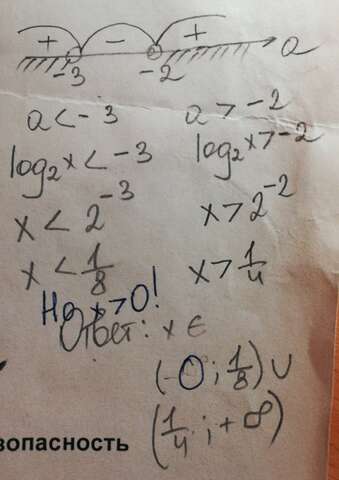 + - +
-3 -2 a
a < -3 a > -2
log₂x < -3 log₂x > -2
x < 2⁻³ x > 2⁻²
x < 1/8 x > 1/4
Но x > 0!
Ответ: x ∈
(0; 1/8) ∪
(1/4; +∞)
зопасность